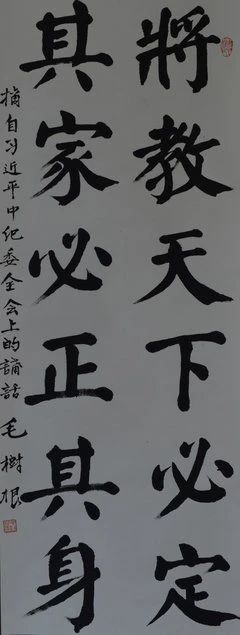 將教天下必定
其家必正其身
摘自习近平中纪委全会上的誦話
毛樹根